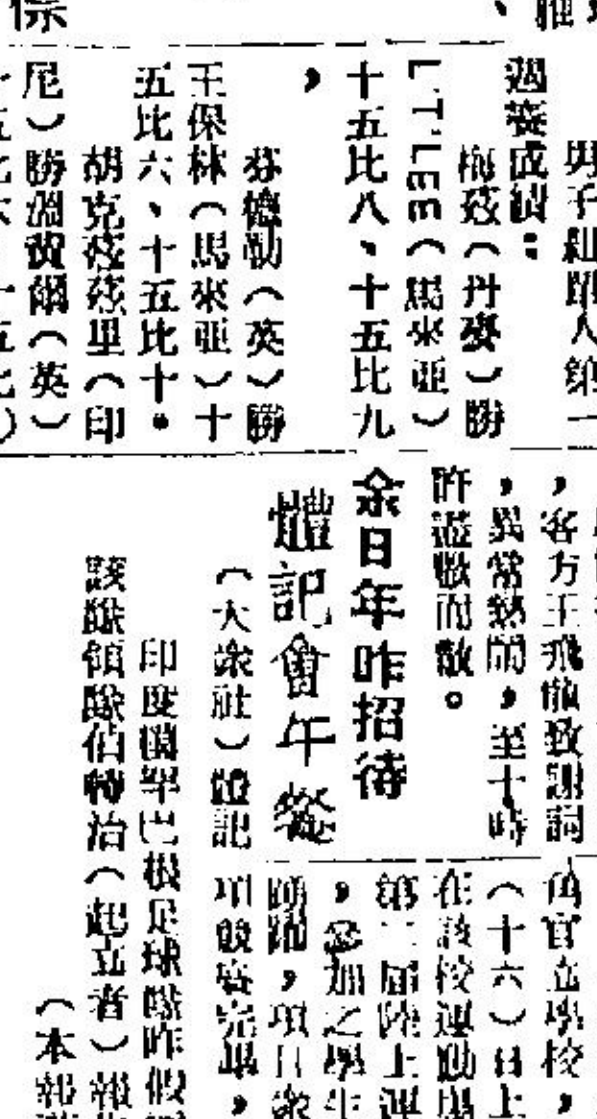 男子組單人第一
週賽成績：
梅茲（丹麥）勝
L'T'LEE（馬來亞）
十五比八、十五比九
，
芬德勒（英）勝
王保林（馬來亞）十
五比六、十五比十。
胡克茲茲里（印
尼）勝（英）
，客方王飛雄致謝詞
，異常熱鬧，至十時
許盡歡而散。
余日年昨招待
體記會午餐
（大衆社）體記
印度國畢巴根足球隊昨假
該隊領隊伯轉治（起立者）報
（本報
官立學校，
（十六）日上
在該校運動場
第二屆陸上運
，參加之學生
踴躍，項目衆
項競賽完畢，